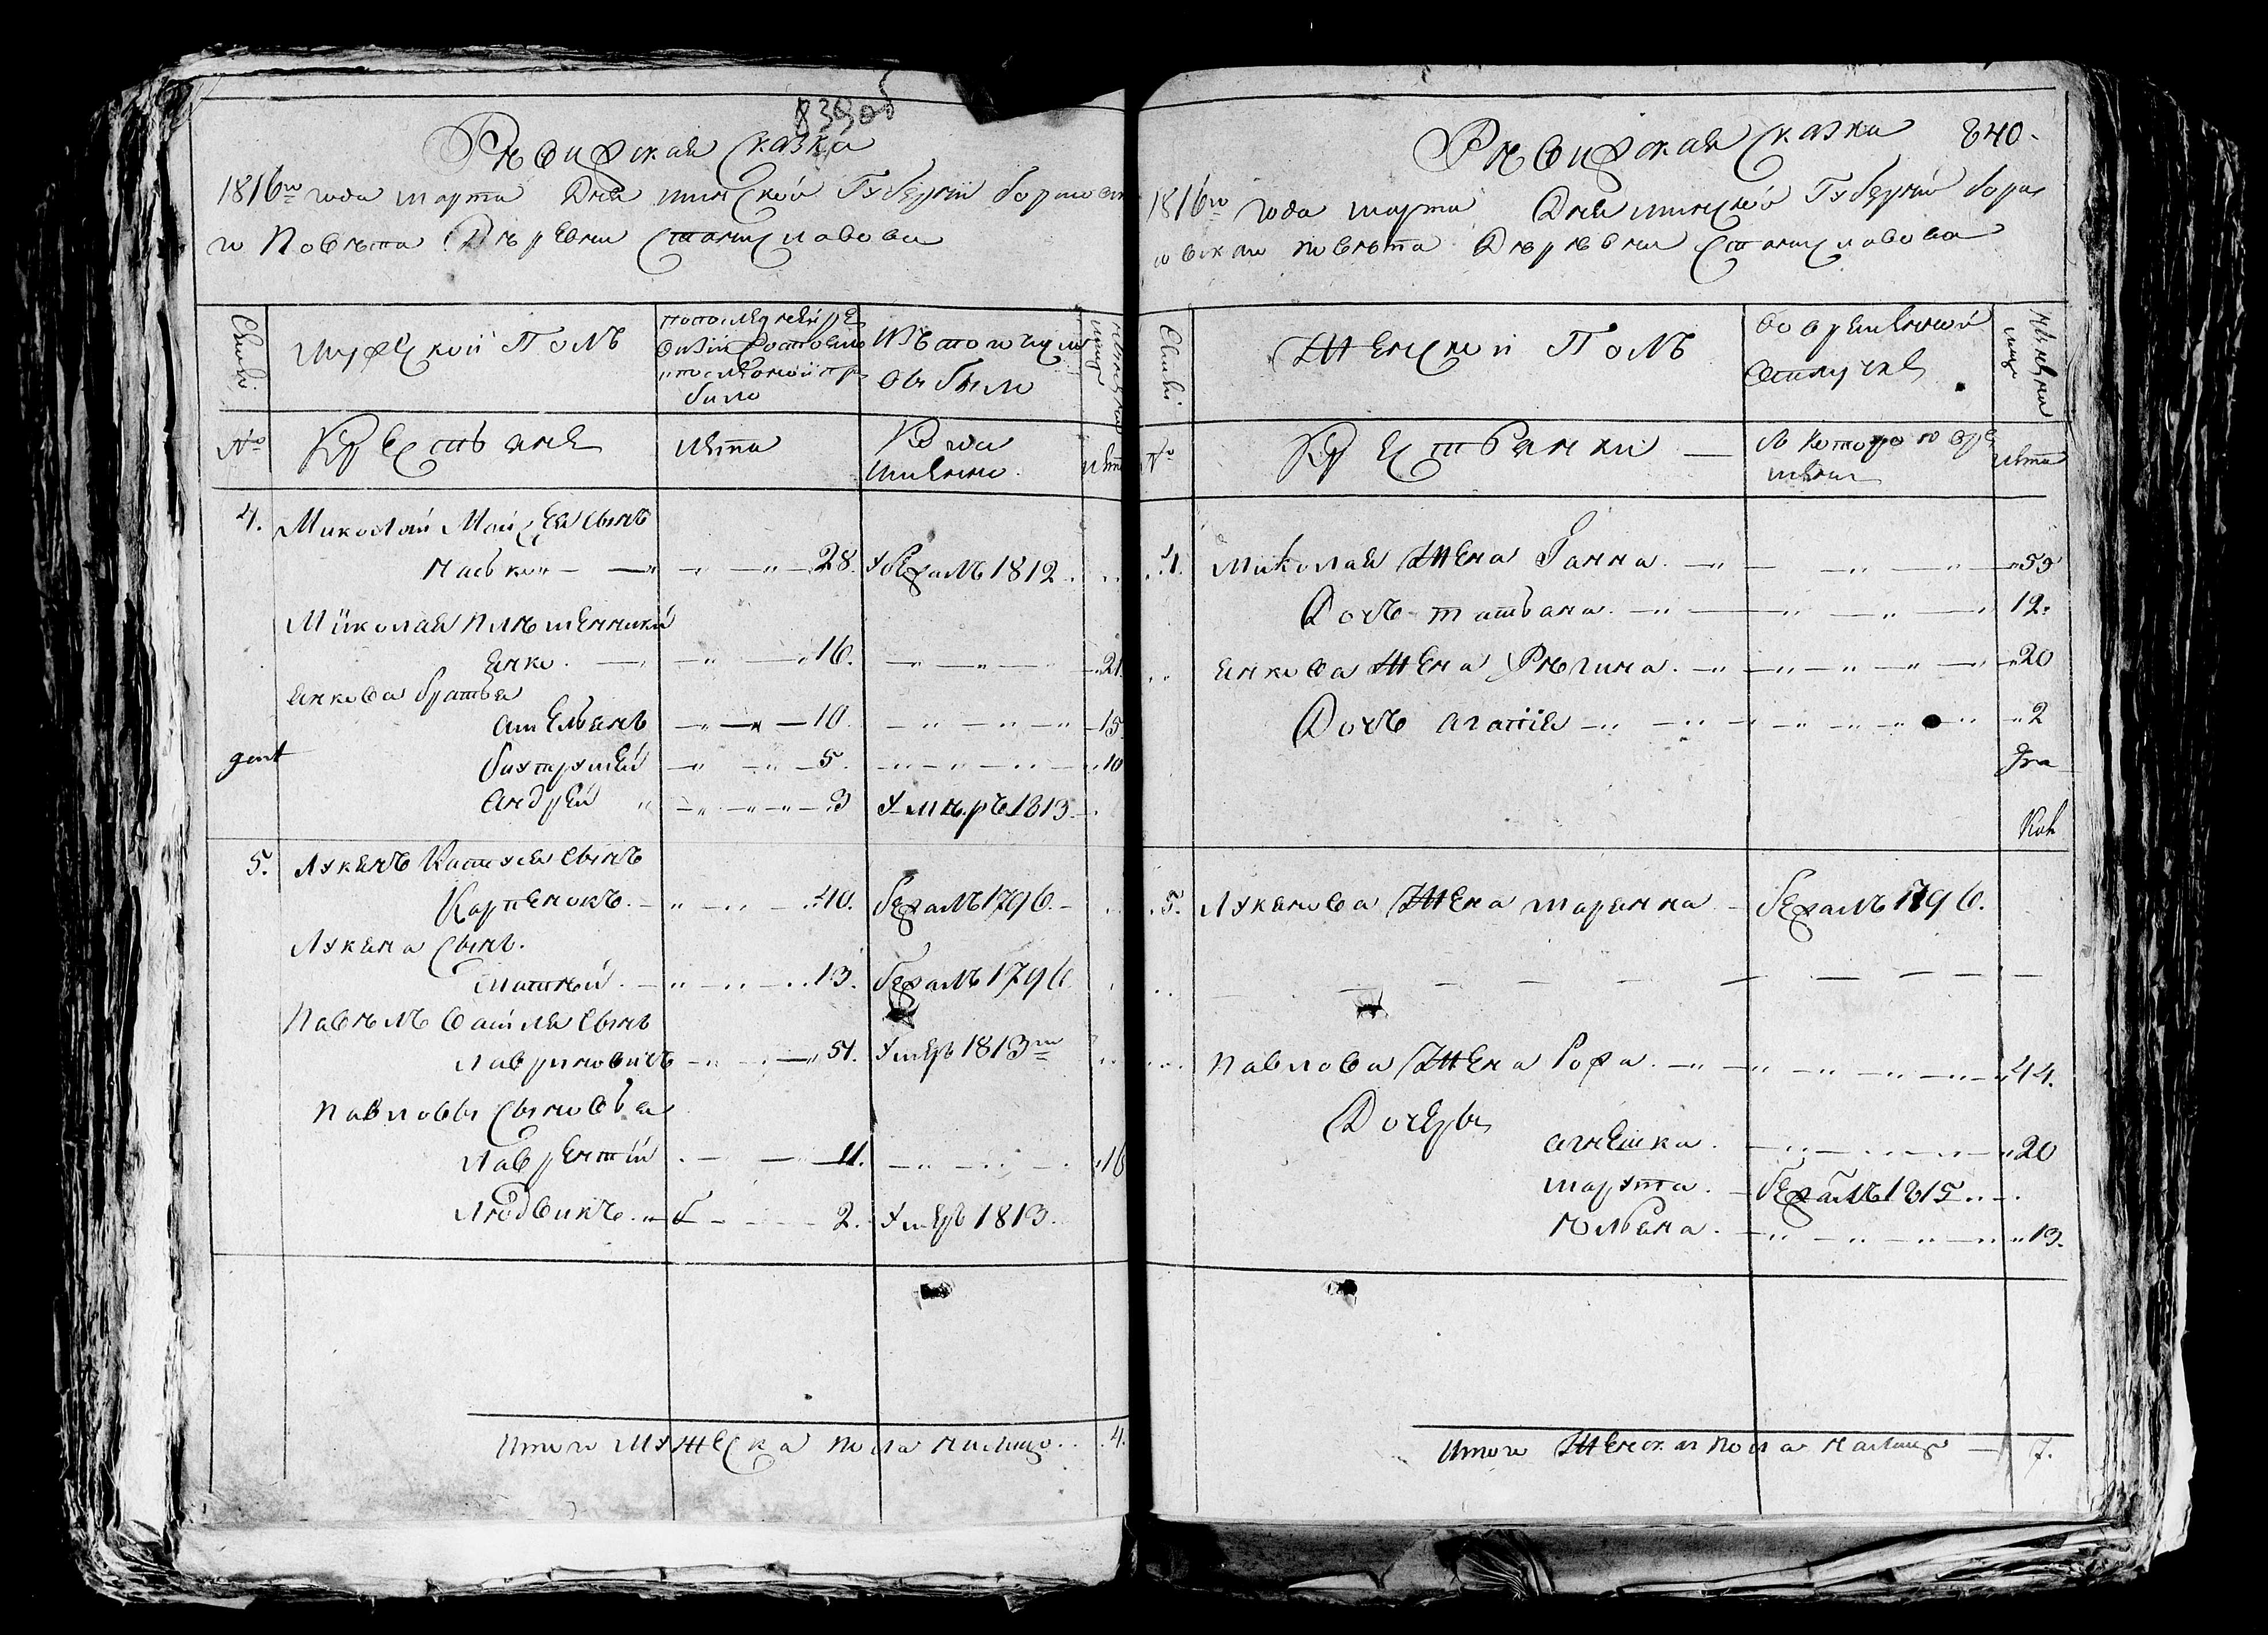 839об
Ревизская сказка
1816го года марта Дня минской Губернии борисовска
го Повета Деревни Станиславова
Семьи
Мужеской Полъ
по последней ре
визии состояло
и после оной при
было
Изъ того числа
выбыло
ныне на
лицо
№
Крестьяне
лета
Когда
имянно.
лета
4. Миколай Мойсея сынъ
28. убежалъ 1812.
Миколая племенники
Янко. 16. 21.
Янкова братья
амельянъ 10. 15.
gent
бахтрумей 5. 10
андрей 3 умѣръ 1813.
5. Лукянъ Матуся сынъ
Карпенокъ. 40. бежалъ 1796.
Лукяна сынъ.
Игнатий. 13. бежалъ 1796
Павелъ василя сынъ
лавриновичъ 51. умеръ 1813го
Павловы сыновья
Лаврентий 11. 16
Людвикъ. 2. умеръ 1813.
Итого мужеска пола налицо. 4.
Ревизская сказка 840.
1816го года марта Дня минской Губернии борис
овскаго повета Деревни Станиславова
Семьи
Женской Полъ
во временной
отлучке
ныне на
лицо
№
Крестьянки
съ которого вре
мени
лета
4. Миколая Жена Ганна. 53
Дочь татьяна. 12.
Янкова Жена Регина. 20
Дочь агапия 2
5. Лукянова Жена марянна бежалъ 1796.
Павлова Жена Роза. 44.
Дочеры
агнешка. 20
марута. бежалъ 1815
юльяна. 13.
Итого Женска пола налицо 7.